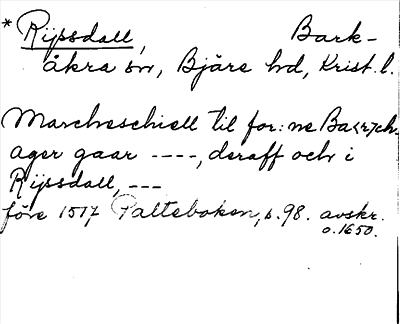 * Rijpsdall, Bark-
åkra sn, Bjäre hd, Krist. l.
Marcheschiell til for: ne Ba<r>ch-
ager gaar ----, deraff och i
Rijssdall, ---
före 1517 Palteboken, s. 98. avskr.
o. 1650.